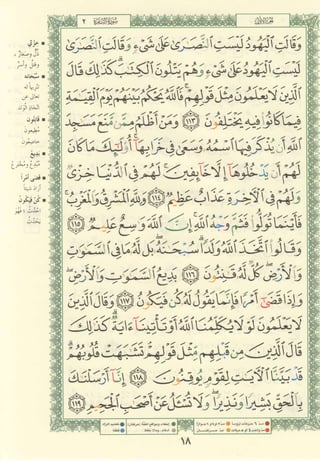 سُورَةُ البَقَرَةِ ٢
وَقَالَتِ ٱلۡيَهُودُ لَيۡسَتِ ٱلنَّصَٰرَىٰ عَلَىٰ شَىۡءٖ وَقَالَتِ ٱلنَّصَٰرَىٰ
لَيۡسَتِ ٱلۡيَهُودُ عَلَىٰ شَىۡءٖ وَهُمۡ يَتۡلُونَ ٱلۡكِتَٰبَۗ كَذَٰلِكَ قَالَ
ٱلَّذِينَ لَا يَعۡلَمُونَ مِثۡلَ قَوۡلِهِمۡۚ فَٱللَّهُ يَحۡكُمُ بَيۡنَهُمۡ يَوۡمَ ٱلۡقِيَٰمَةِ
فِيمَا كَانُواْ فِيهِ يَخۡتَلِفُونَ ١١٣ وَمَنۡ أَظۡلَمُ مِمَّن مَّنَعَ مَسَٰجِدَ
ٱللَّهِ أَن يُذۡكَرَ فِيهَا ٱسۡمُهُۥ وَسَعَىٰ فِي خَرَابِهَآۚ أُوْلَٰٓئِكَ مَا كَانَ
لَهُمۡ أَن يَدۡخُلُوهَآ إِلَّا خَآئِفِينَۚ لَهُمۡ فِي ٱلدُّنۡيَا خِزۡيٞ
وَلَهُمۡ فِي ٱلۡأٓخِرَةِ عَذَابٌ عَظِيمٞ ١١٤ وَلِلَّهِ ٱلۡمَشۡرِقُ وَٱلۡمَغۡرِبُۚ
فَأَيۡنَمَا تُوَلُّواْ فَثَمَّ وَجۡهُ ٱللَّهِۚ إِنَّ ٱللَّهَ وَٰسِعٌ عَلِيمٞ ١١٥
وَقَالُواْ ٱتَّخَذَ ٱللَّهُ وَلَدٗاۗ سُبۡحَٰنَهُۥۖ بَل لَّهُۥ مَا فِي ٱلسَّمَٰوَٰتِ
وَٱلۡأَرۡضِۖ كُلّٞ لَّهُۥ قَٰنِتُونَ ١١٦ بَدِيعُ ٱلسَّمَٰوَٰتِ وَٱلۡأَرۡضِۖ
وَإِذَا قَضَىٰٓ أَمۡرٗا فَإِنَّمَا يَقُولُ لَهُۥ كُن فَيَكُونُ ١١٧ وَقَالَ ٱلَّذِينَ
لَا يَعۡلَمُونَ لَوۡلَا يُكَلِّمُنَا ٱللَّهُ أَوۡ تَأۡتِينَآ ءَايَةٞۗ كَذَٰلِكَ
قَالَ ٱلَّذِينَ مِن قَبۡلِهِم مِّثۡلَ قَوۡلِهِمۡۘ تَشَٰبَهَتۡ قُلُوبُهُمۡۗ
قَدۡ بَيَّنَّا ٱلۡأٓيَٰتِ لِقَوۡمٖ يُوقِنُونَ ١١٨ إِنَّآ أَرۡسَلۡنَٰكَ
بِٱلۡحَقِّ بَشِيرٗا وَنَذِيرٗاۖ وَلَا تُسۡـَٔلُ عَنۡ أَصۡحَٰبِ ٱلۡجَحِيمِ ١١٩
١٨